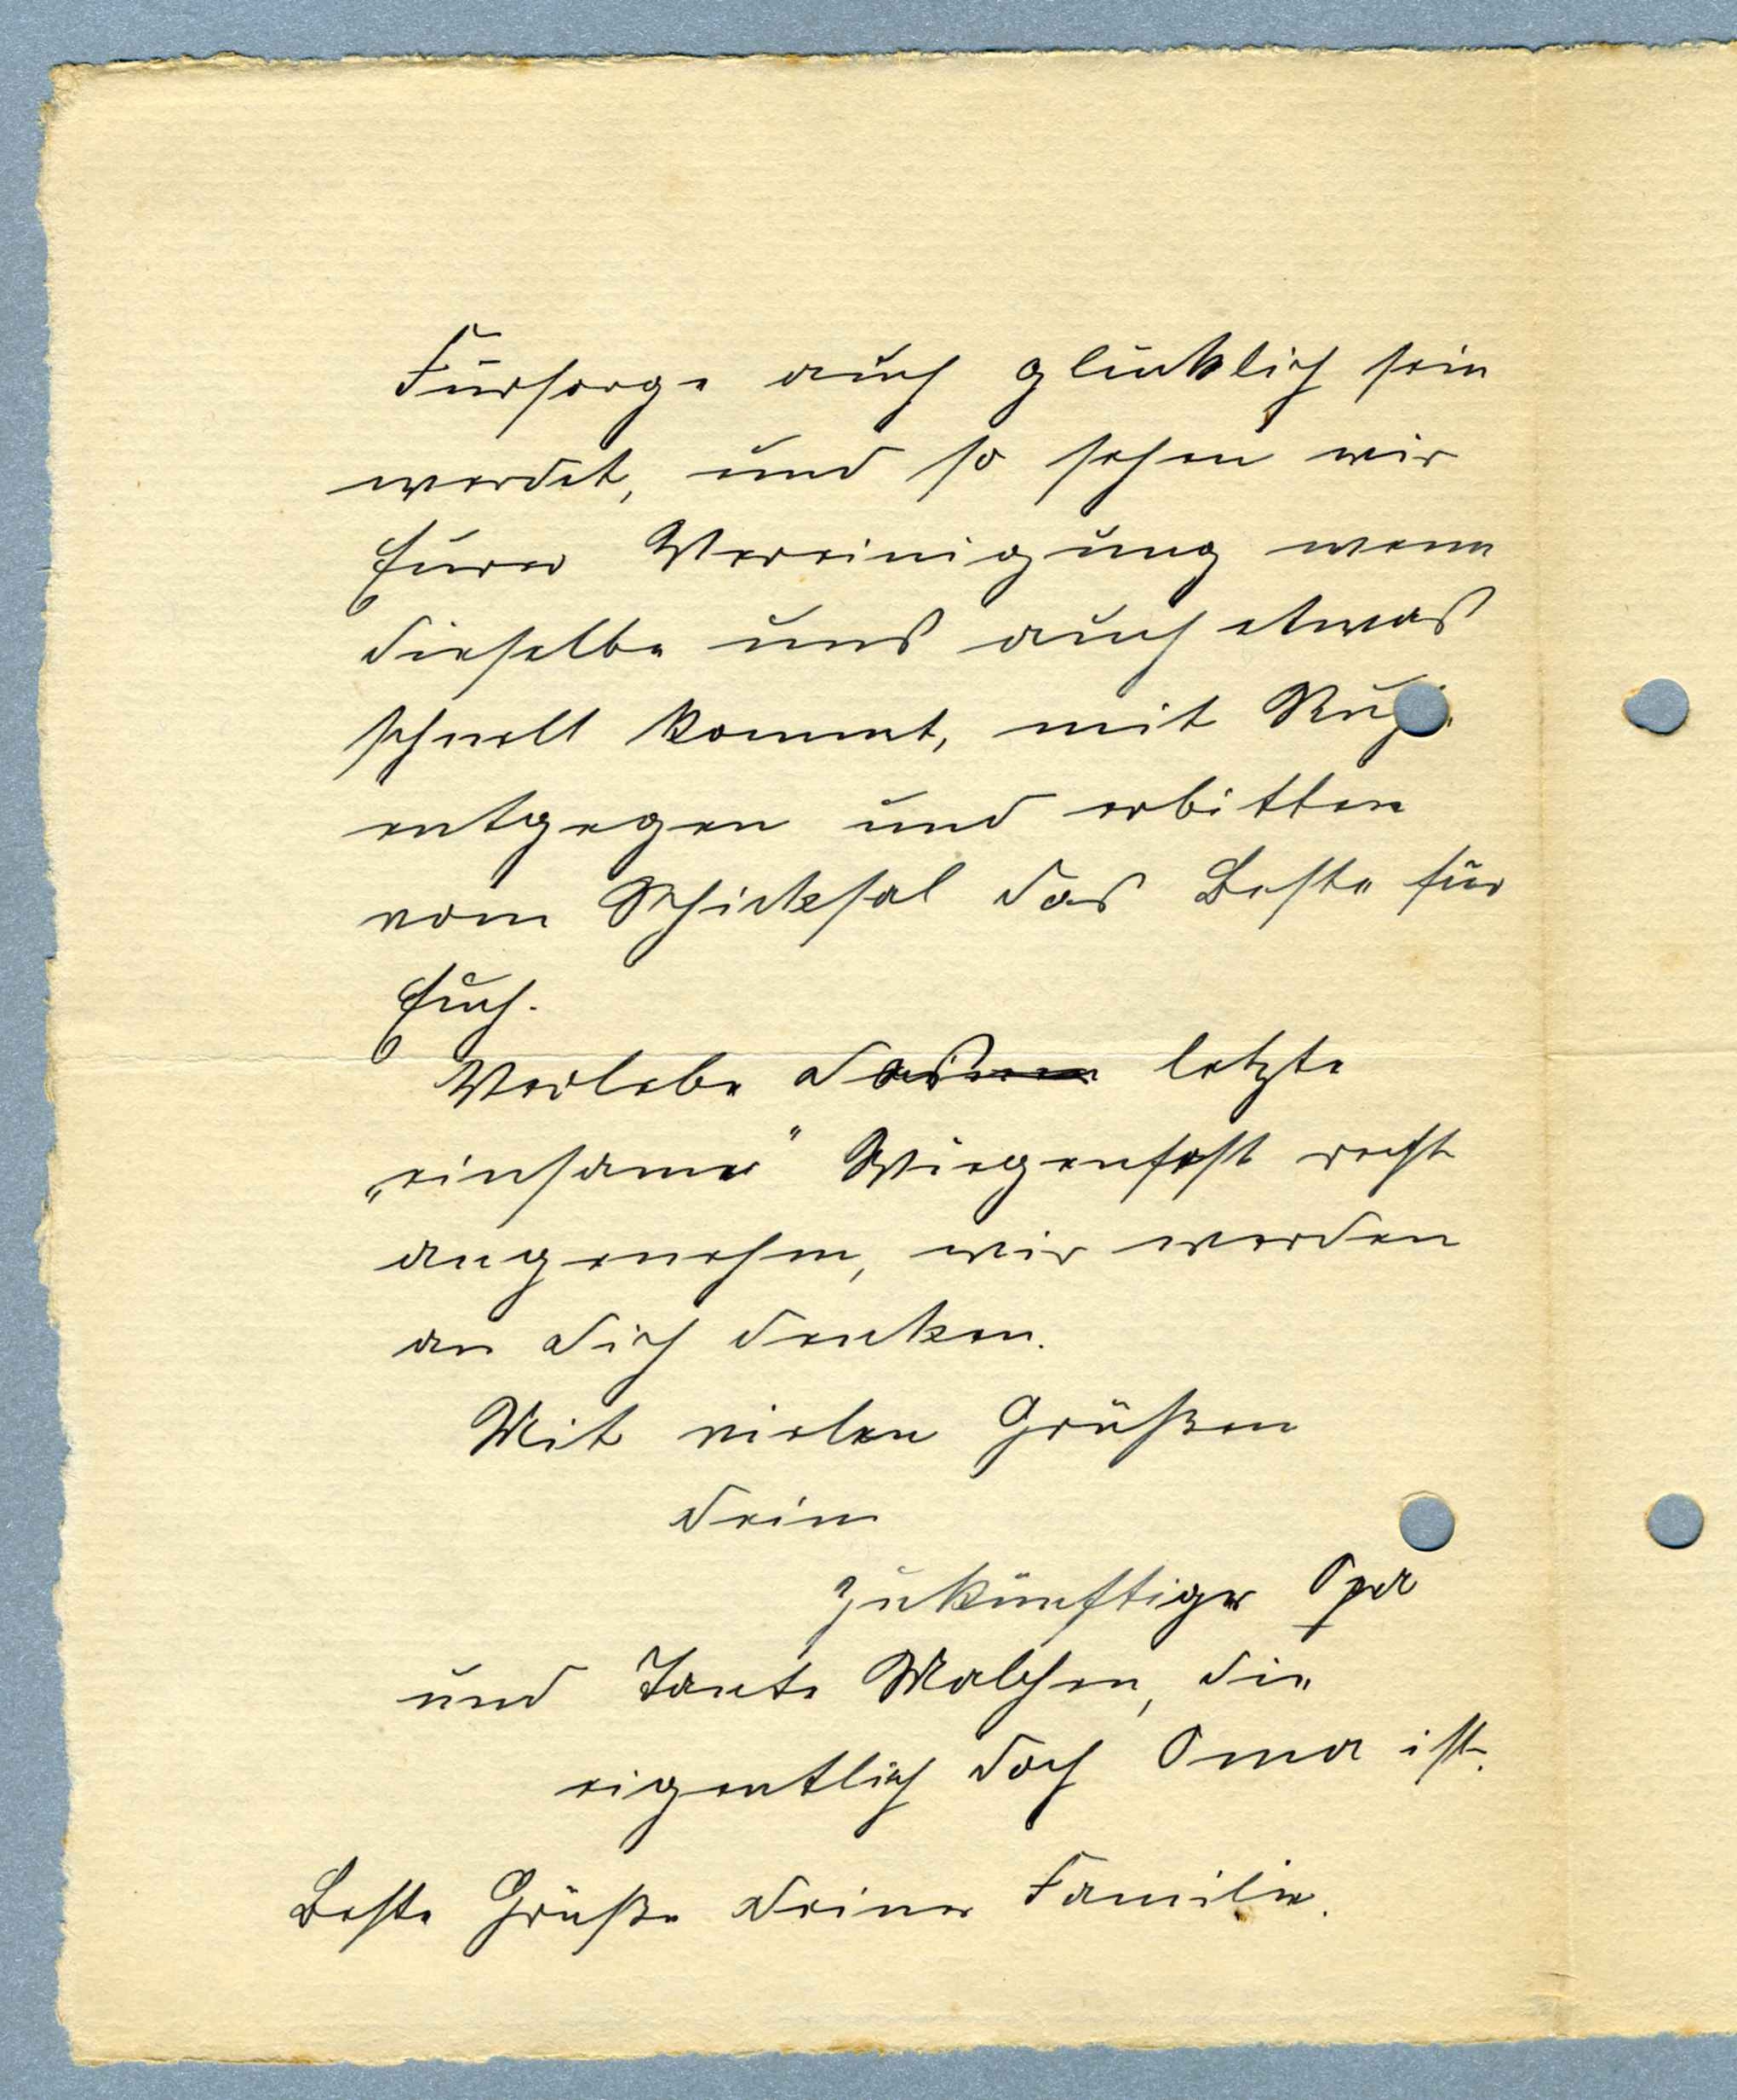 Fürsorge auch glücklich sein
werdet, und so sehen wir
Eurer Vereinigung wenn
dieselbe uns auch etwas
schnell kommt, mit Ruh
entgegen und erbitten
vom Schicksal das Beste für
Euch.
Verlebe das letzte
„einsame" Wiegenfest recht
angenehm, wir werden
an Dich denken.
Mit vielen Grüßen
Dein
zukünftiger Opa
und Tante Malchen, die
eigentlich doch Oma ist.
Beste Grüße Deiner Familie.